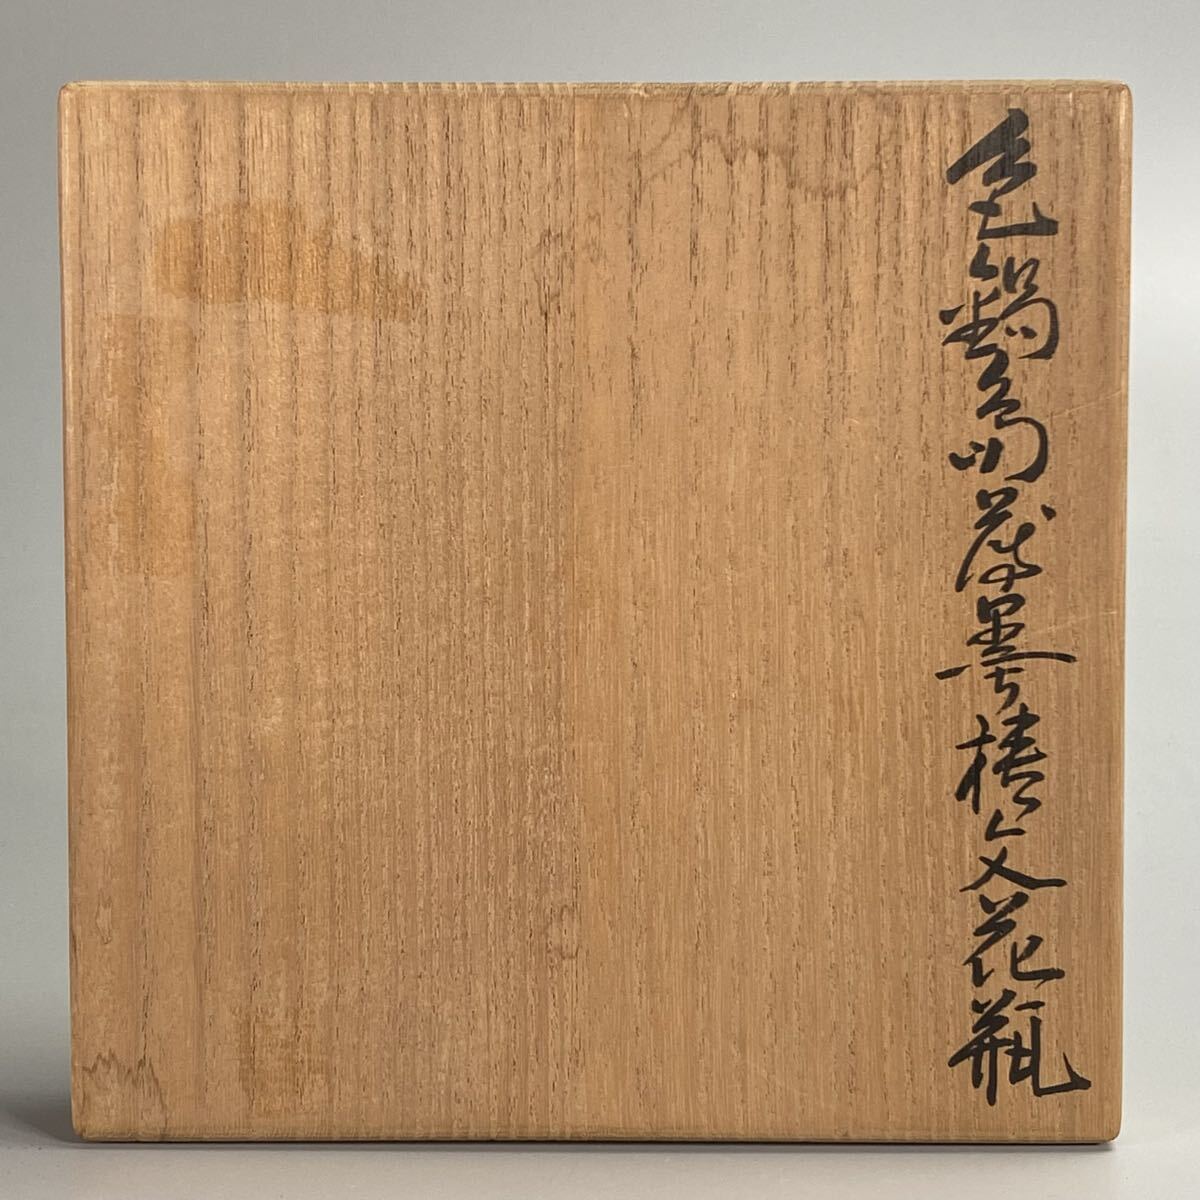 色鍋島薄墨椿文花瓶